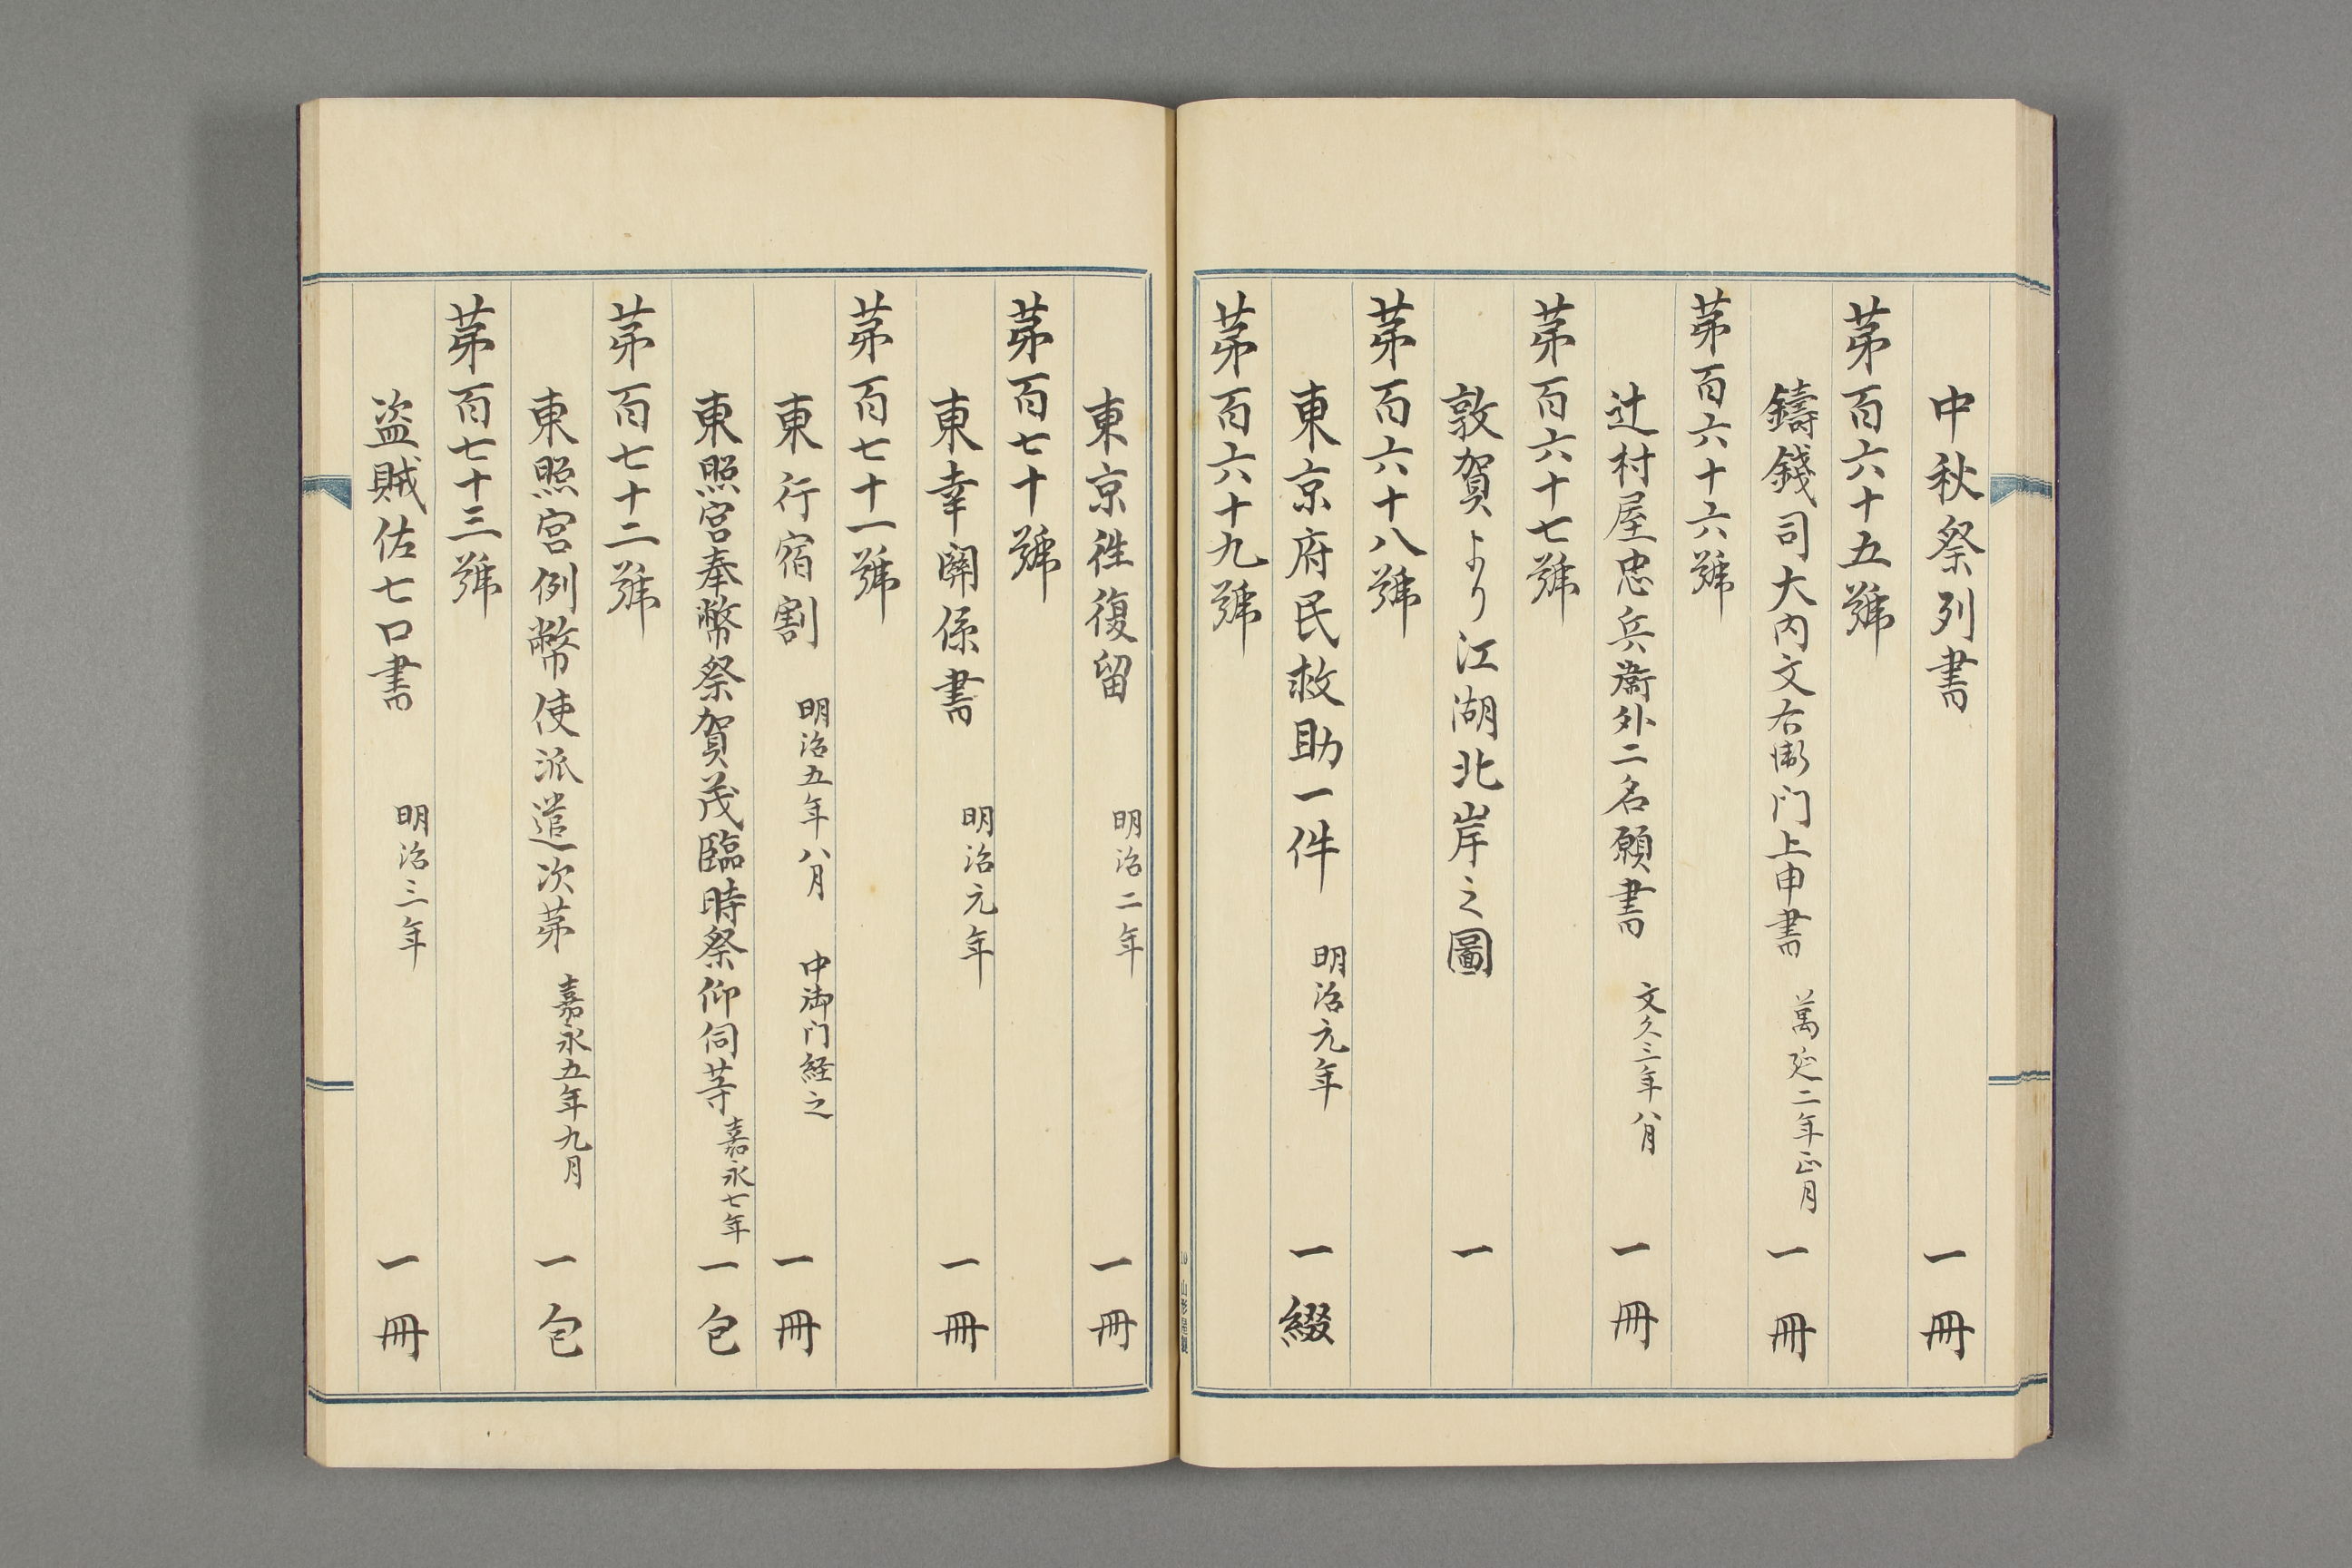 中秋祭列書　一冊
第百六十五號
鑄錢司大内文右衛门上申書　萬延二年正月　一冊
第百六十六號
辻村屋忠兵衞外二名願書　文久三年八月　一冊
第百六十七號
敦賀より江湖北岸之圖　一
第百六十八號
東京府民救助一件　明治元年　一綴
第百六十九號
東京徃復留　明治二年　一冊
第百七十號
東幸関係書　明治元年　一冊
第百七十一號
東行宿割　明治五年八月　中御门経之　一冊
東照宮奉幣祭賀茂臨時祭仰伺等　嘉永七年　一包
第百七十二號
東照宮例幣使派遣次第　嘉永五年九月　一包
第百七十三號
盗賊佐七口書　明治三年　一冊